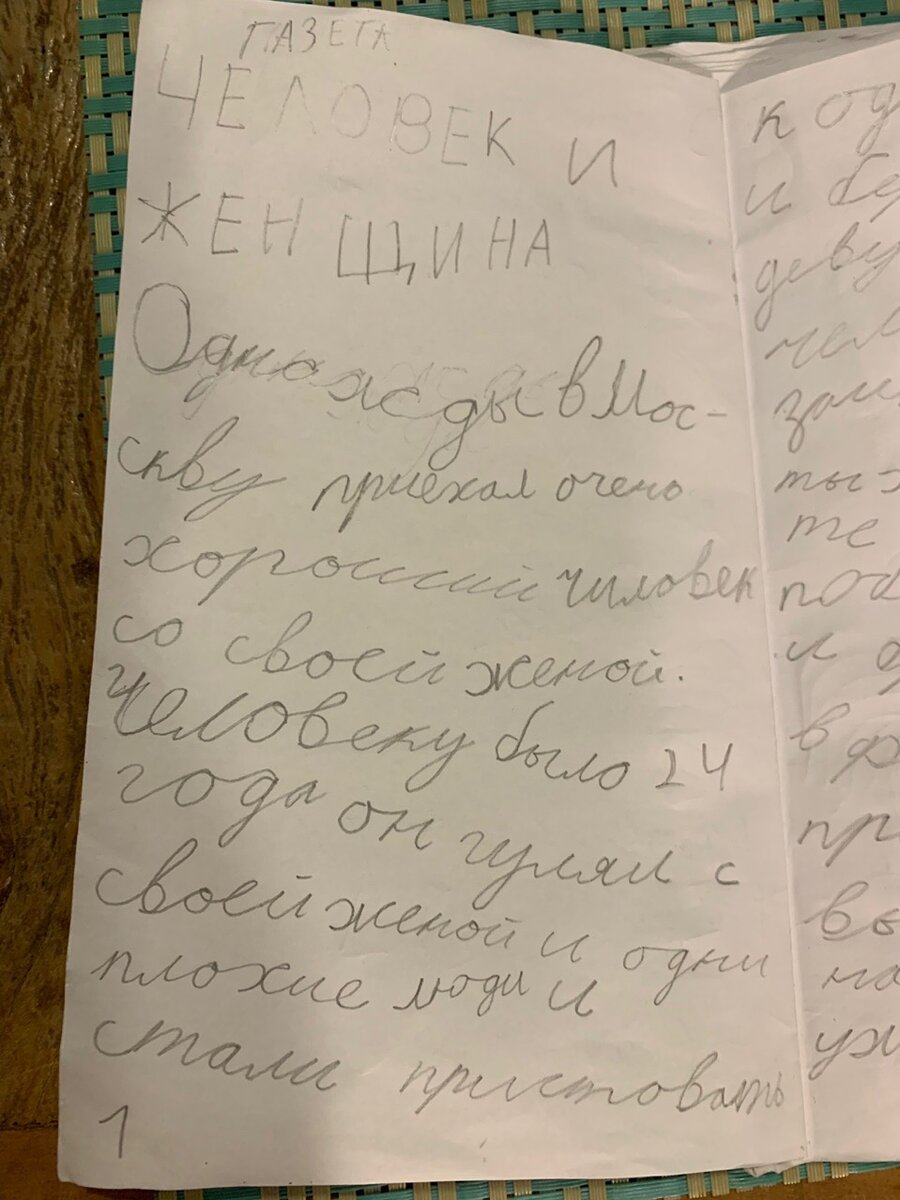 ГАЗЕТА
ЧЕЛОВЕК И
ЖЕНЩИНА
Однажды в Мос-
скву приехал очень
хороший чиловек
со своей женой.
Человеку было 24
года он гулял с
своей женой и одни
плохие люди и
стали пристовать
1
к од
и бе
деву
чел
зам
ты-
те
поб
и
в
пр
вы
на
уж